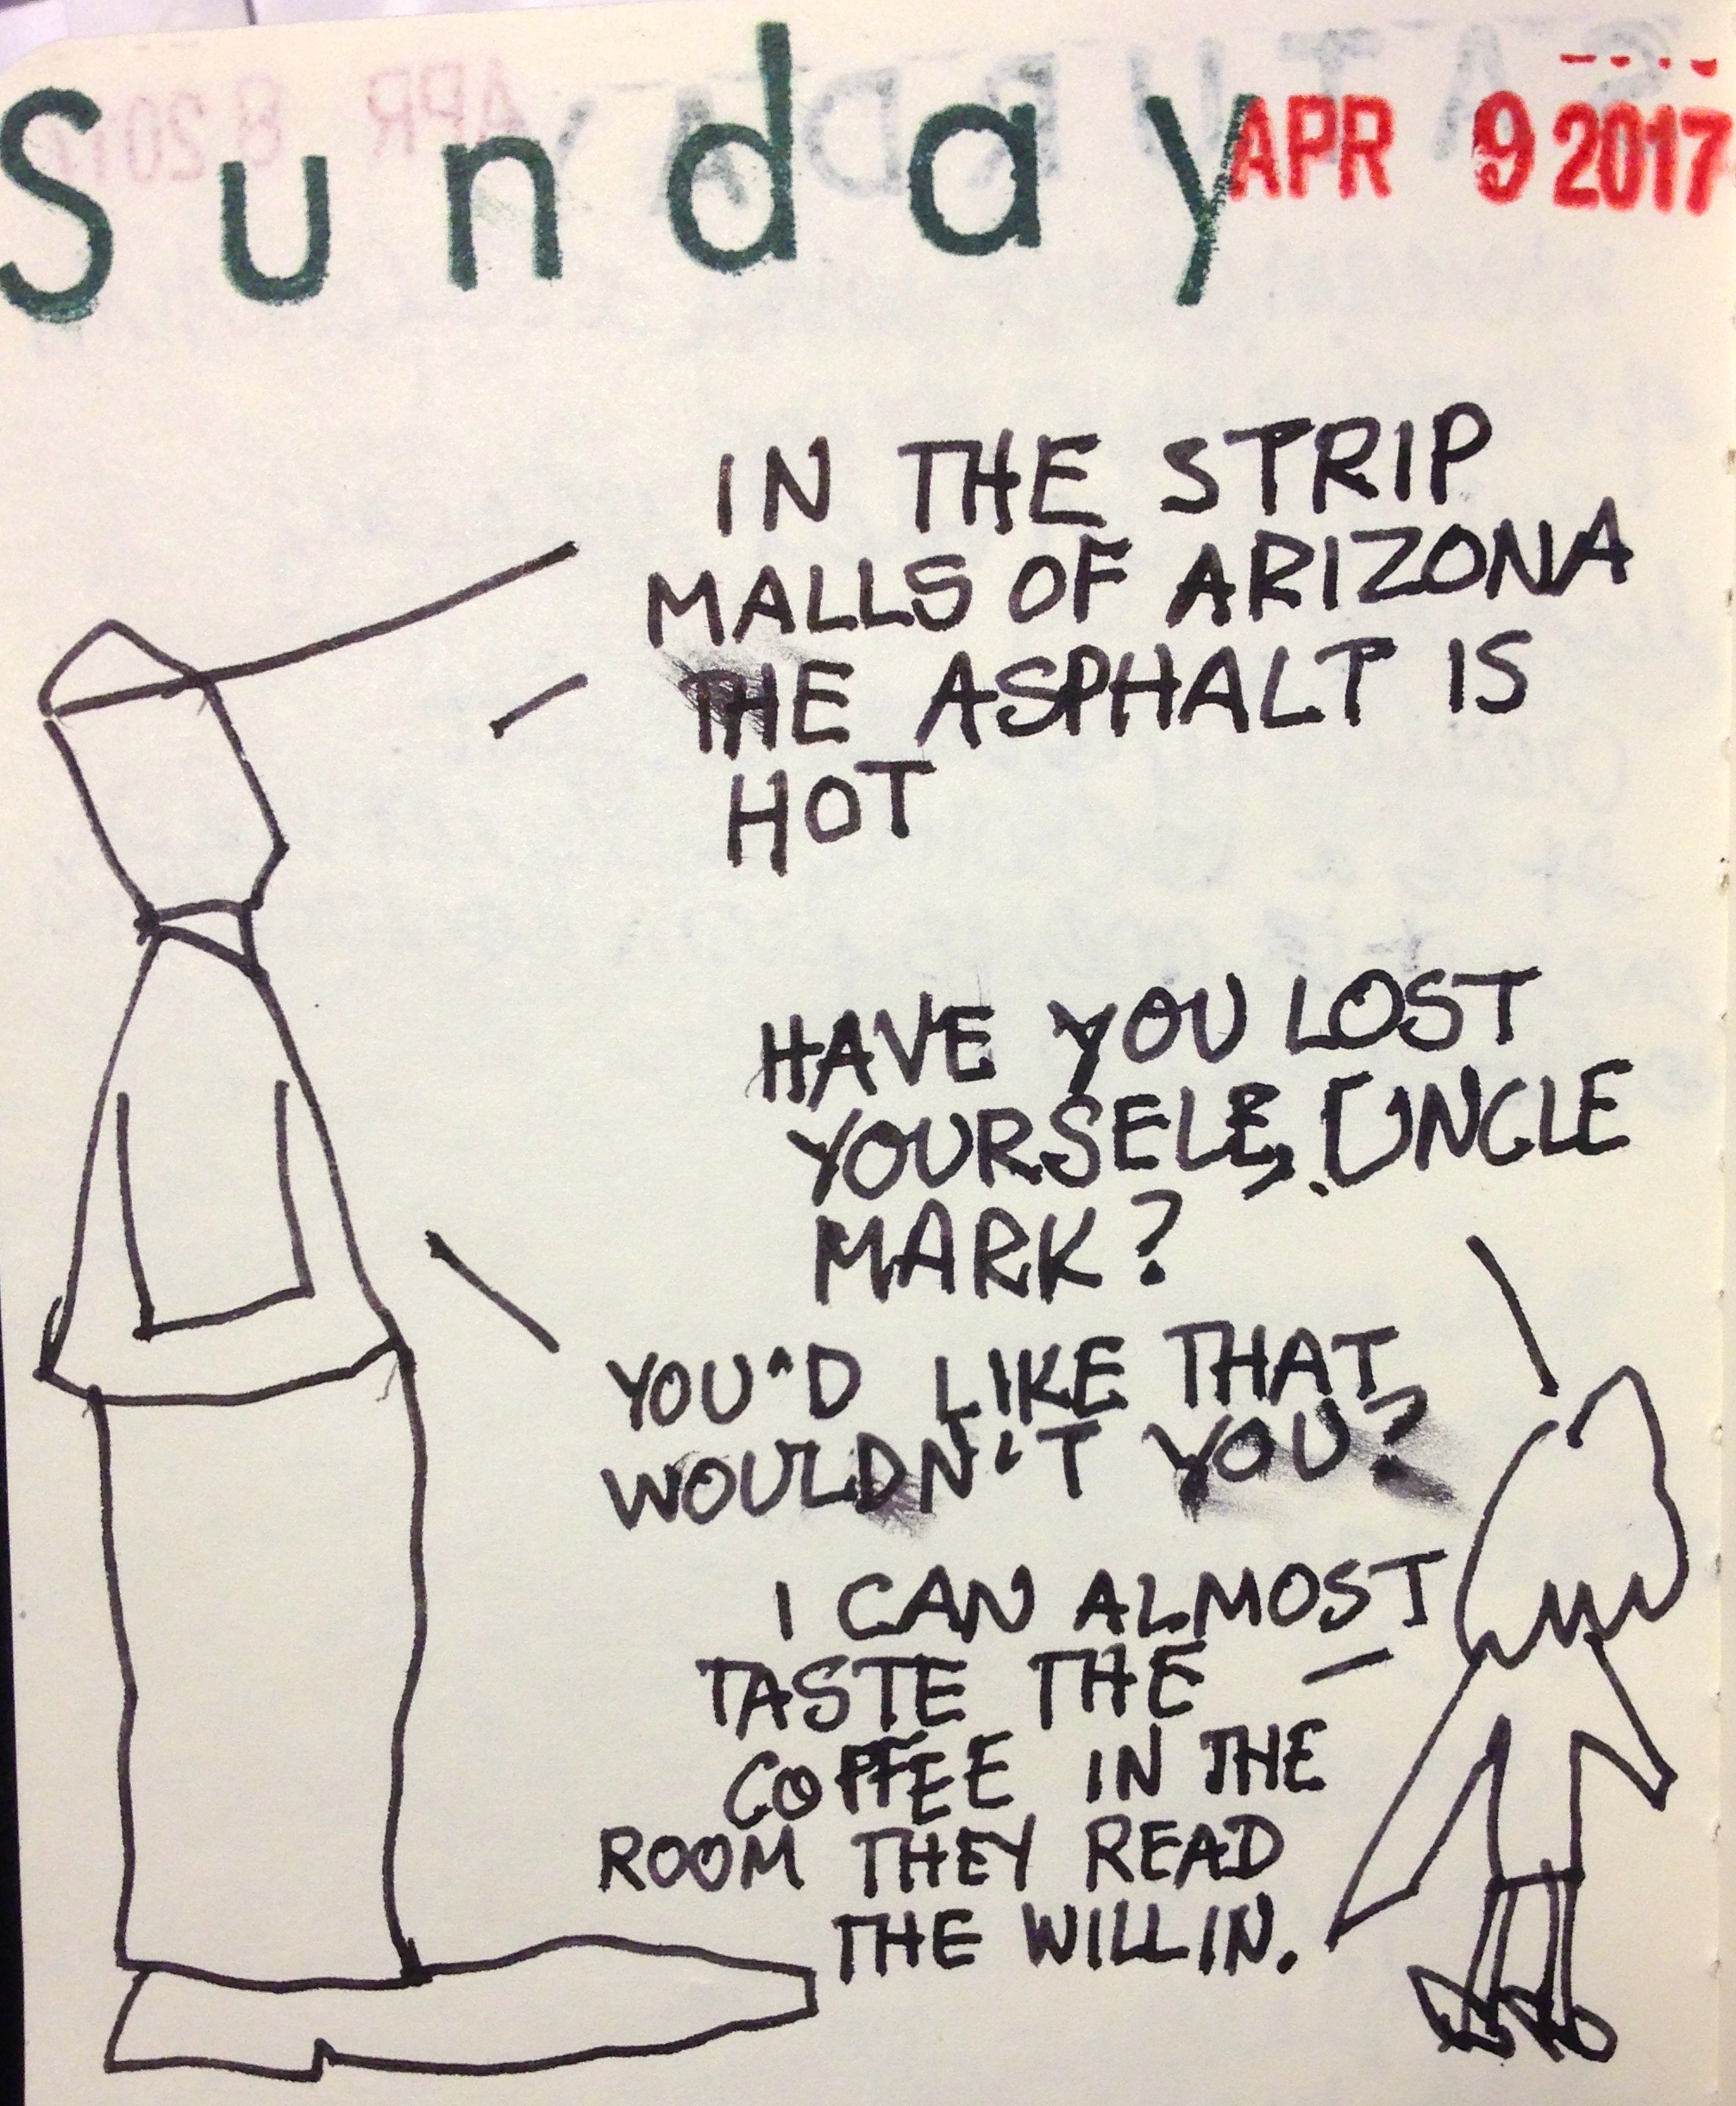 Sunday APR 9 2017
IN THE STRIP
MALLS OF ARIZONA
THE ASPHALT IS
HOT
HAVE YOU LOST
YOURSELF, UNCLE
MARK?
YOU'D LIKE THAT
WOULDN'T YOU?
I CAN ALMOST
TASTE THE
COFFEE IN THE
ROOM THEY READ
THE WILL IN.